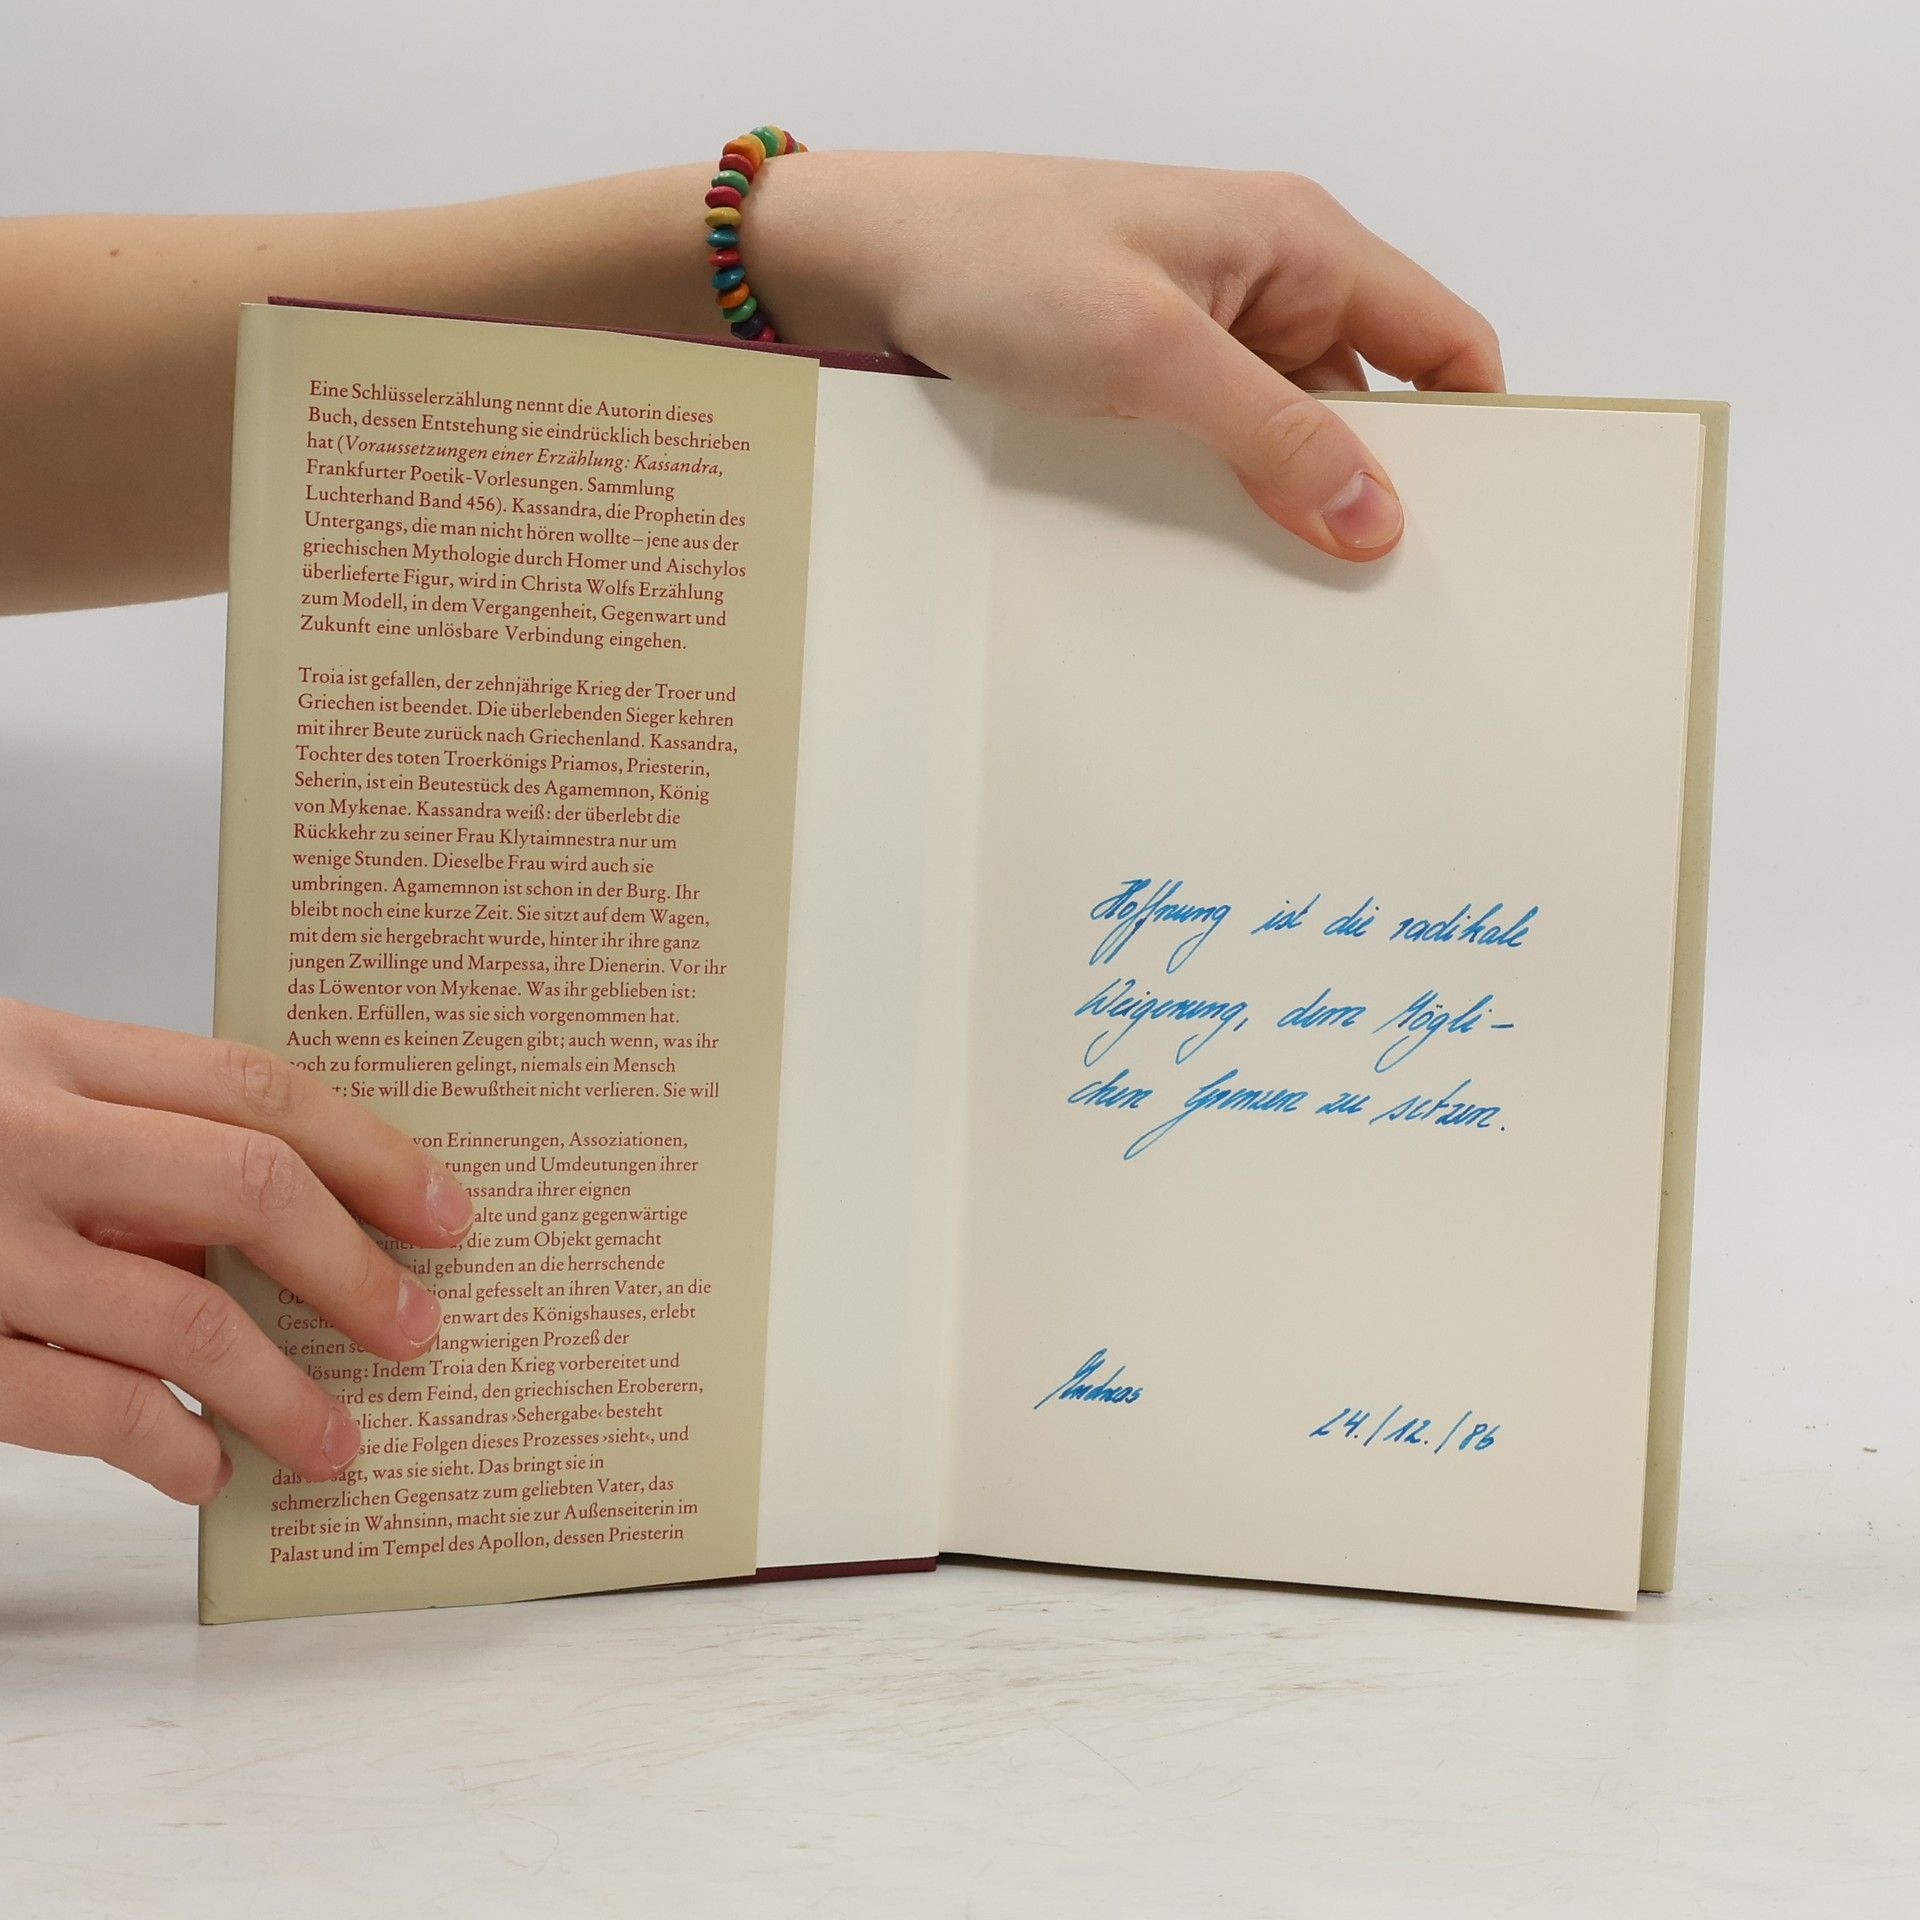 Eine Schlüsselerzählung nennt die Autorin dieses
Buch, dessen Entstehung sie eindrücklich beschrieben
hat (Voraussetzungen einer Erzählung: Kassandra,
Frankfurter Poetik-Vorlesungen. Sammlung
Luchterhand Band 456). Kassandra, die Prophetin des
Untergangs, die man nicht hören wollte – jene aus der
griechischen Mythologie durch Homer und Aischylos
überlieferte Figur, wird in Christa Wolfs Erzählung
zum Modell, in dem Vergangenheit, Gegenwart und
Zukunft eine unlösbare Verbindung eingehen.
Troia ist gefallen, der zehnjährige Krieg der Troer und
Griechen ist beendet. Die überlebenden Sieger kehren
mit ihrer Beute zurück nach Griechenland. Kassandra,
Tochter des toten Troerkönigs Priamos, Priesterin,
Seherin, ist ein Beutestück des Agamemnon, König
von Mykenae. Kassandra weiß: der überlebt die
Rückkehr zu seiner Frau Klytaimnestra nur um
wenige Stunden. Dieselbe Frau wird auch sie
umbringen. Agamemnon ist schon in der Burg. Ihr
bleibt noch eine kurze Zeit. Sie sitzt auf dem Wagen,
mit dem sie hergebracht wurde, hinter ihr ihre ganz
jungen Zwillinge und Marpessa, ihre Dienerin. Vor ihr
das Löwentor von Mykenae. Was ihr geblieben ist:
denken. Erfüllen, was sie sich vorgenommen hat.
Auch wenn es keinen Zeugen gibt; auch wenn, was ihr
noch zu formulieren gelingt, niemals ein Mensch
: Sie will die Bewußtheit nicht verlieren. Sie will
von Erinnerungen, Assoziationen,
und Umdeutungen ihrer
Kassandra ihrer eignen
alte und ganz gegenwärtige
einer , die zum Objekt gemacht
gebunden an die herrschende
gefesselt an ihren Vater, an die
des Königshauses, erlebt
sie einen langwierigen Prozeß der
Indem Troia den Krieg vorbereitet und
wird es dem Feind, den griechischen Eroberern,
Kassandras ›Sehergabe‹ besteht
sie die Folgen dieses Prozesses ›sieht‹, und
daß sie sagt, was sie sieht. Das bringt sie in
schmerzlichen Gegensatz zum geliebten Vater, das
treibt sie in Wahnsinn, macht sie zur Außenseiterin im
Palast und im Tempel des Apollon, dessen Priesterin
Hoffnung ist die radikale
Weigerung, dem Mögli –
chen Grenzen zu setzen.
Andreas
24./12./86